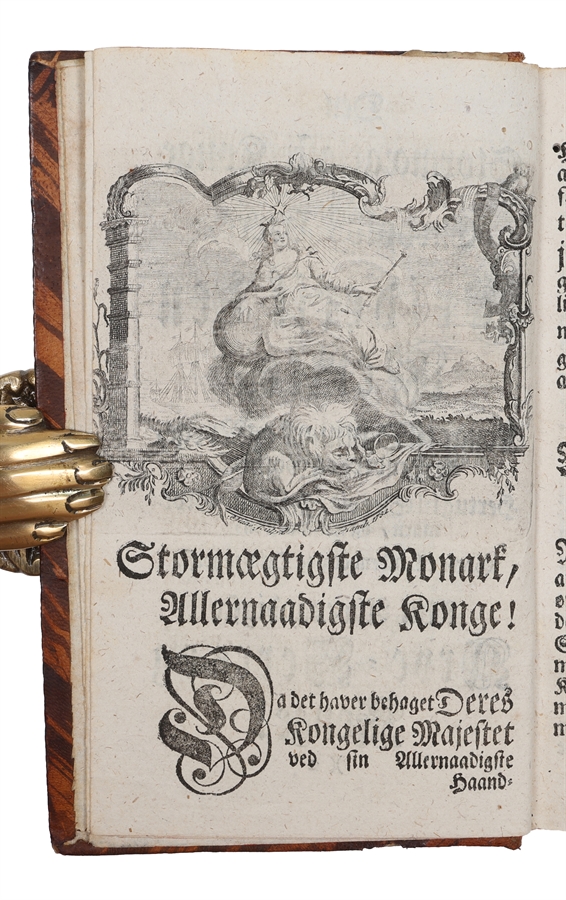 Stormægtigste Monark,
Allernaadigste Konge!
Da det haver behaget Deres
Kongelige Majestet
ved sin Allernaadigste
Haand-